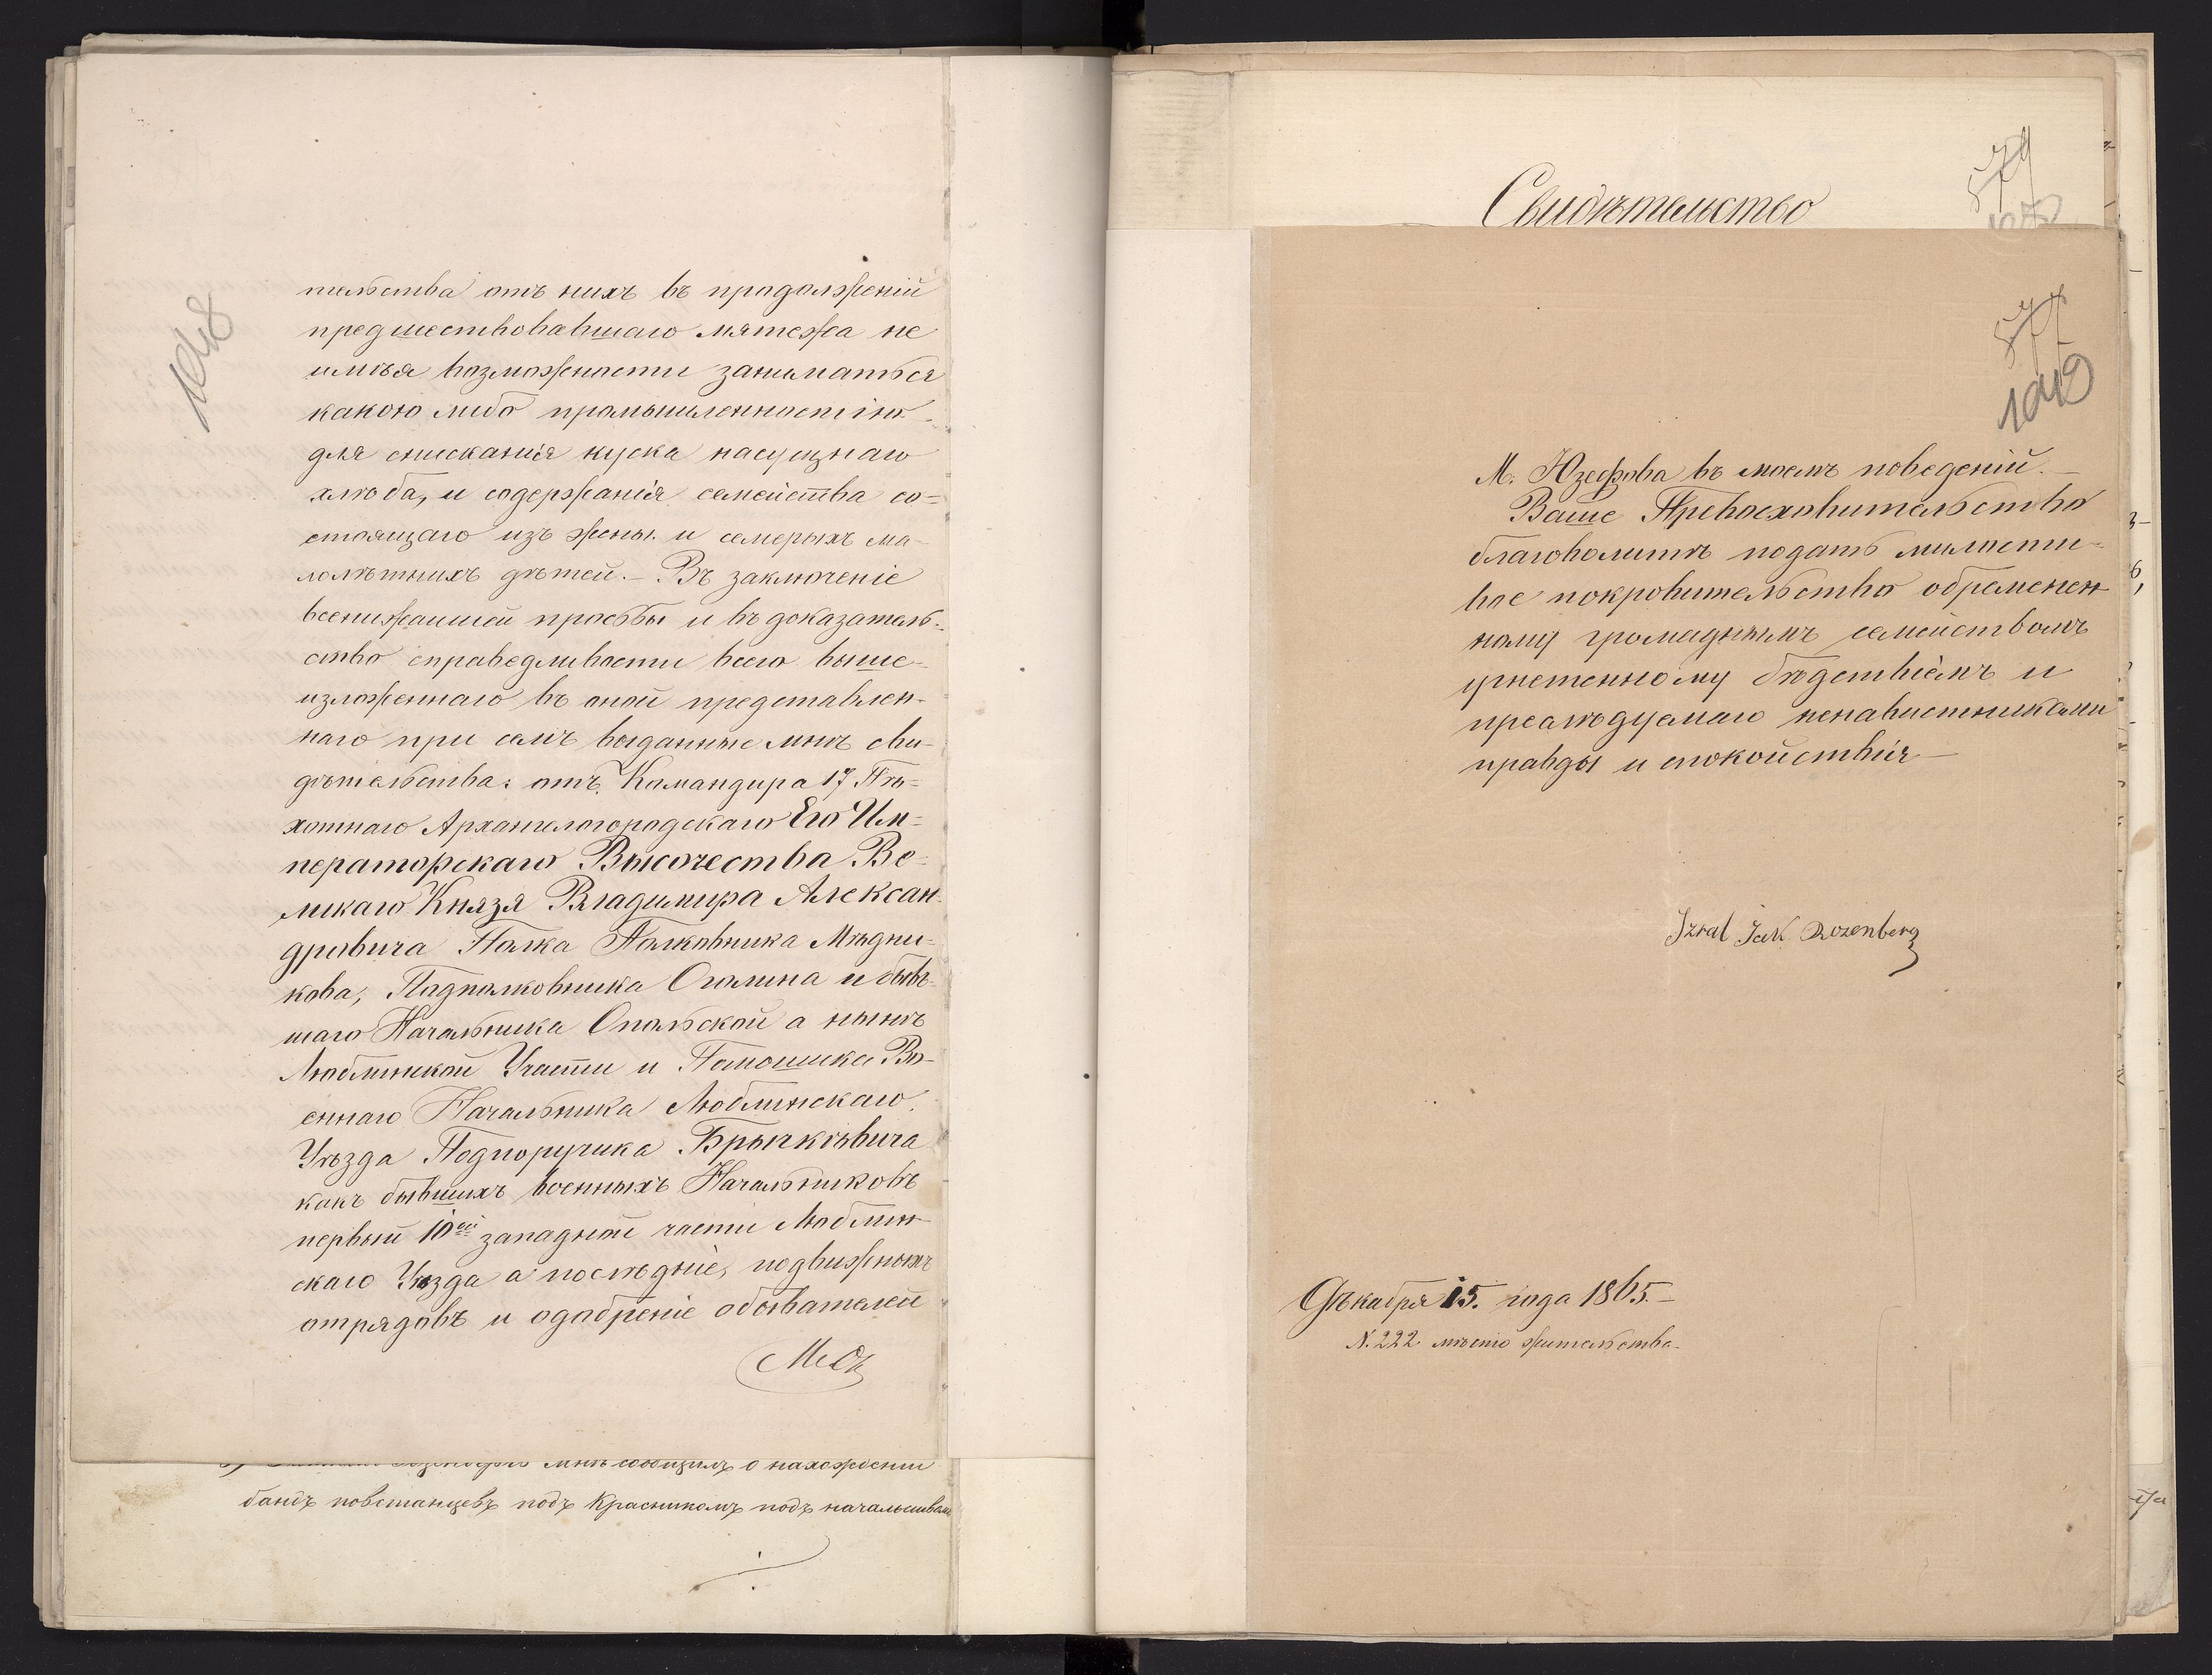 1048
тельства отъ нихъ въ продолженій
предшествовавшаго мятежа не
имѣя возможности заниматься
какою либо промышленностію
для снисканія куска насущнаго
хлѣба, и содержанія семейства со=
стоящаго изъ жены и семерыхъ ма-
лолѣтнихъ дѣтей. — Въ заключеніе
всенижайшей просьбы и въ доказатель=
ство справедливости всего выше=
изложеннаго въ оной представлен-
наго при семъ выданные мнѣ сви-
дѣтельства: отъ Командира 17 Пѣ=
хотнаго Архангелогородскаго Его Им=
ператорскаго Высочества Ве=
ликаго Князя Владимира Алексан-
дровича Полка Полковника Мѣдни=
кова, Подполковника Оголина и быв=
шаго Начальника Опольской а нынѣ
Люблинской Участи и Помошика Во-
еннаго Начальника Люблинскаго
Уѣзда Подпоручика
какъ бывшихъ военныхъ Начальниковъ
первый 10ой западной части Люблин-
скаго Уѣзда а послѣдніе, подвижныхъ
отрядовъ и одобреніе обывателей
мнѣ сообщилъ о нахожденіи
бандъ повстанцевъ подъ Красникомъ подъ начальствомъ
Свидѣтельство
579
577
1049
М. Юзефова въ моемъ поведеній. —
Ваше Превосховительство
благоволитъ подать милости=
вое покровительство обременен
ному громаднымъ семействомъ
угнетенному бѣдствіемъ и
преслѣдуемаго ненавистниками
правды и спокойствія —
Izral Jck Rozenberg
Дѣкабря 15. года 1865. —
N. 222 мѣсто жительства.